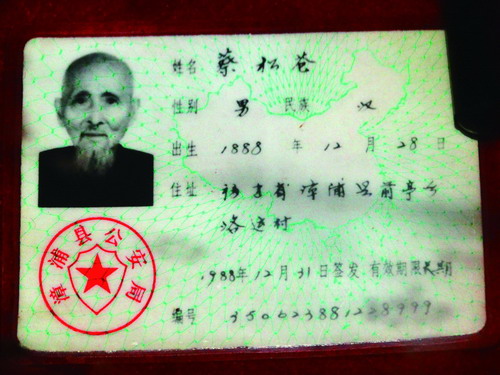 姓名 蔡松苍
性别 男 民族 汉
出生 1888 年 12 月 28 日
住址 福建省漳浦县前亭乡
村
1988年12月31日签发 有效期限长期
编号 350623881228999
漳浦县公安局